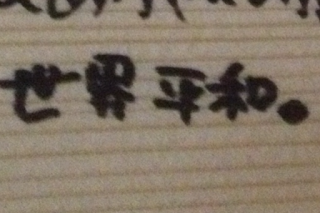 世界平和。